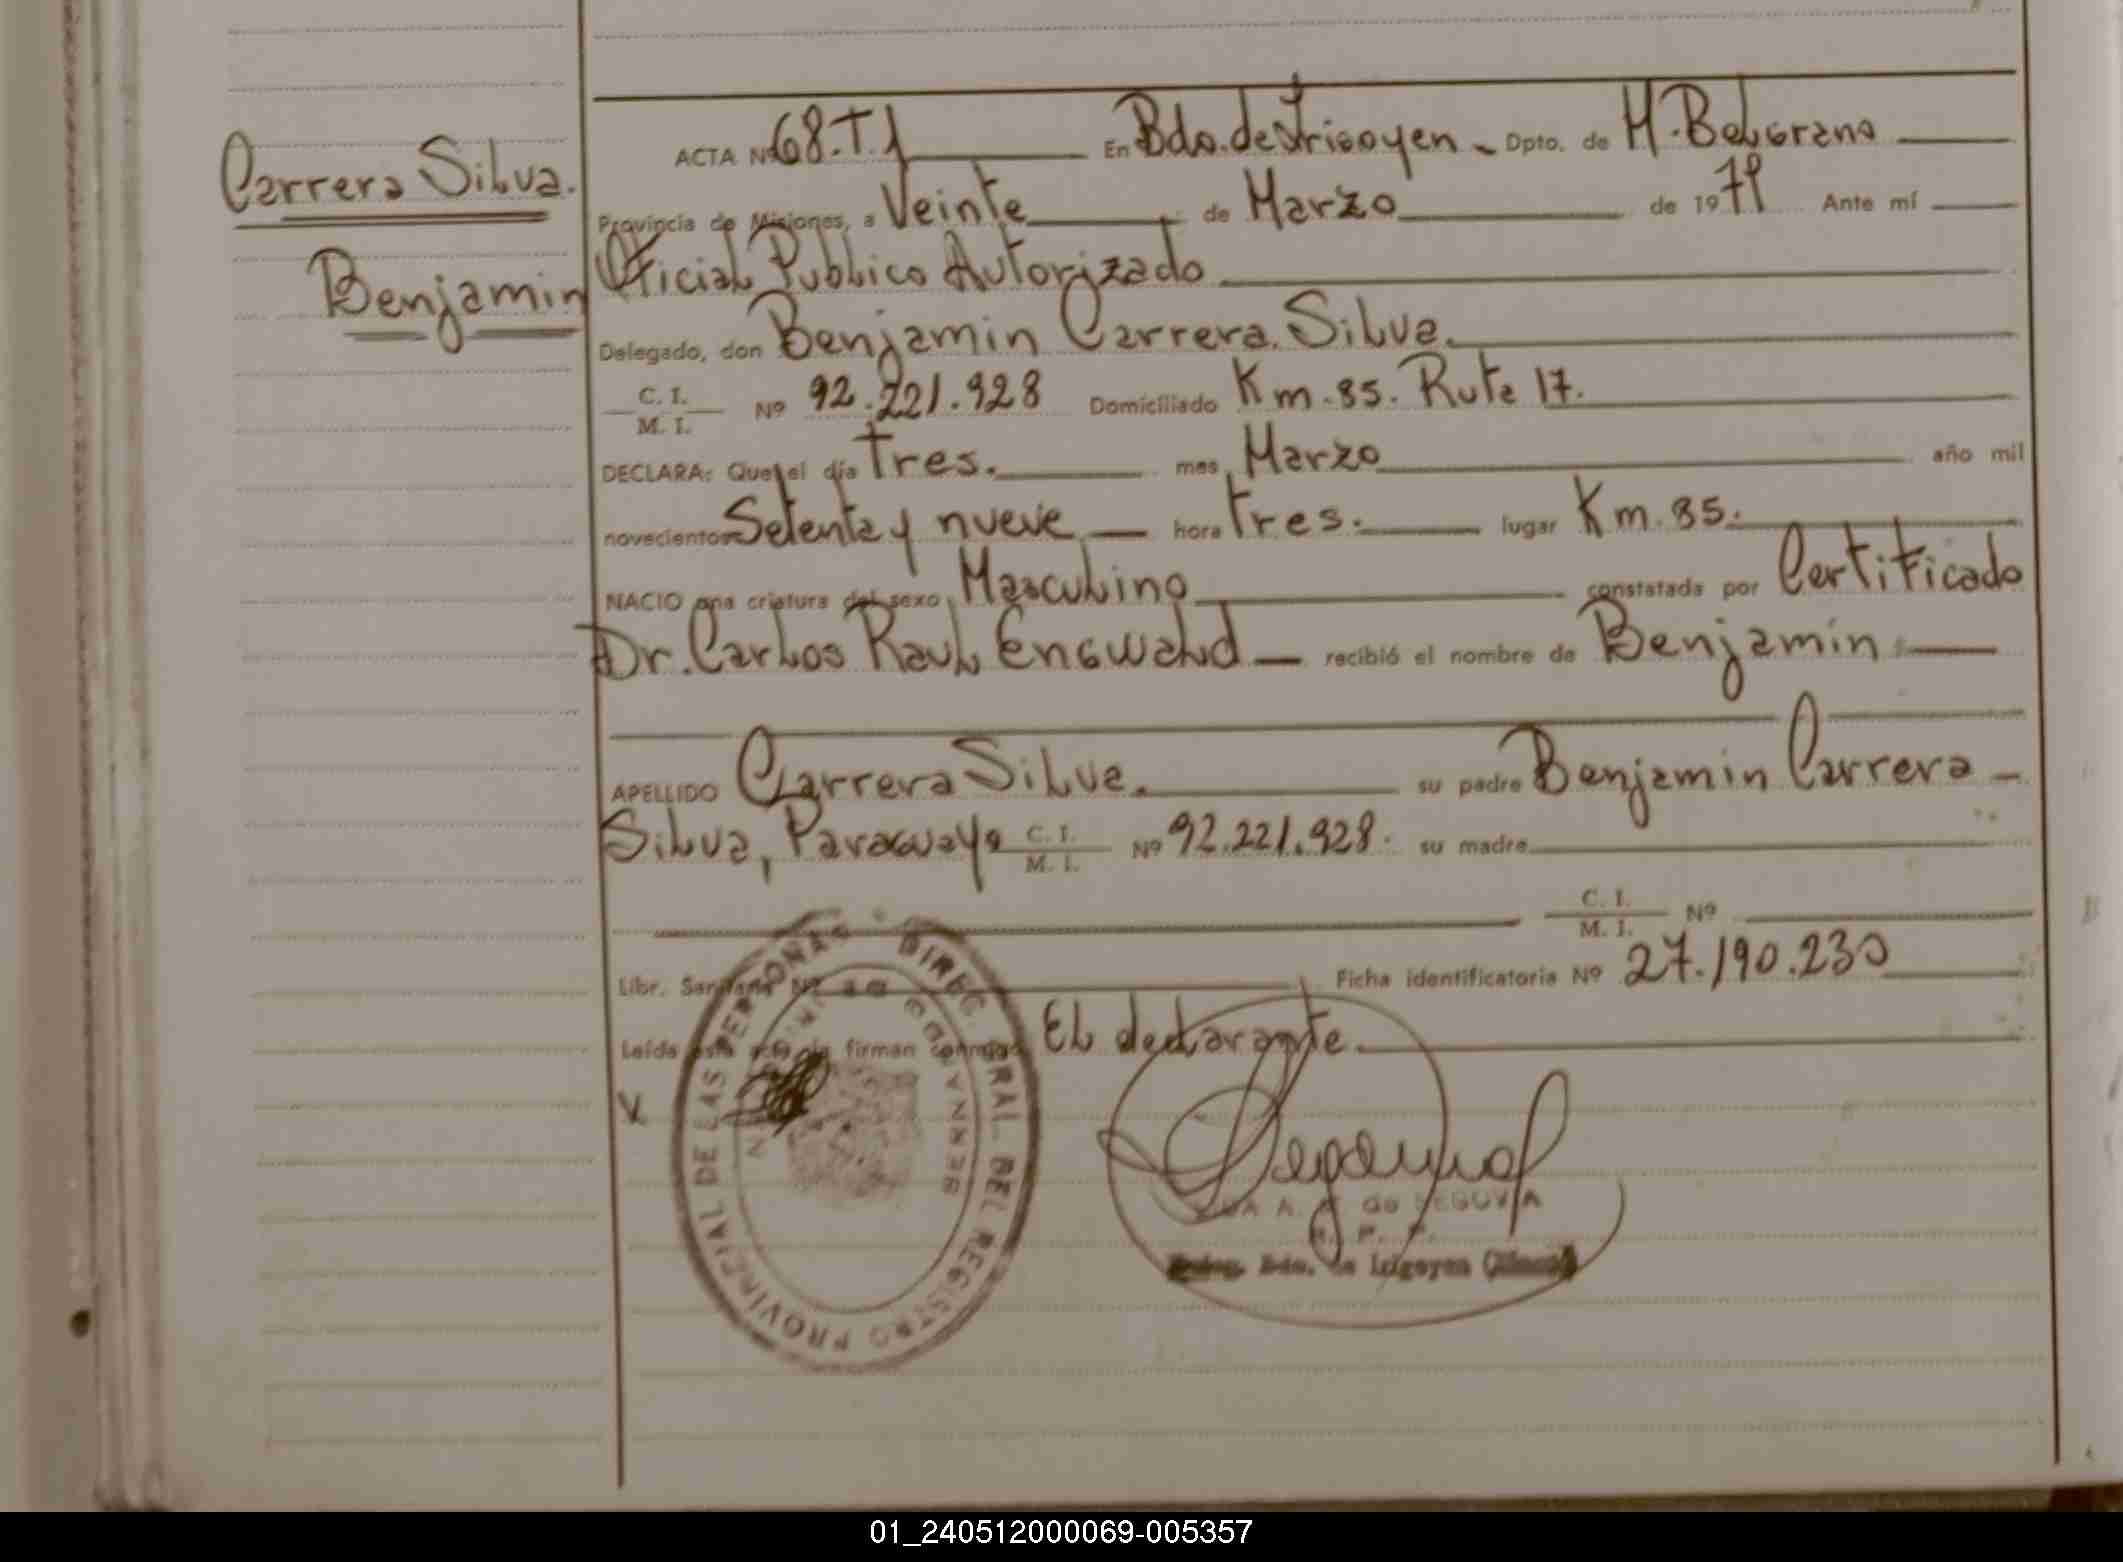 Carrera Silva.
Benjamin
ACTA Nº 68.T.1 En Bdo. de Irigoyen - Dpto. de M. Belgrano
Provincia de Misiones, a Veinte de Marzo de 1979 Ante mí
Oficial Publico Autorizado
Delegado, don Benjamin Carrera. Silva.
C. I.
M. I. Nº 92.221.928 Domiciliado Km. 85. Ruta 17.
DECLARA: Que el día tres. mes Marzo año mil
novecientos Setenta y nueve hora tres. lugar Km. 85.
NACIO una criatura del sexo Masculino constatada por Certificado
Dr. Carlos Raul Engwald recibió el nombre de Benjamin
APELLIDO Carrera Silva. su padre Benjamin Carrera
Silva, Paraguayo C. I.
M. I. Nº 92.221.928. su madre
C. I.
M. I. Nº
Libr. Sanitaria Nº Ficha identificatoria Nº 27.190.230
Leída esta acta la firman conmigo El declarante
X
DIREC. GRAL. DEL REGISTRO PROVINCIAL DE LAS PERSONAS
BERNARDO
de SEGOVIA
Deleg. Bdo. de Irigoyen
01_240512000069-005357